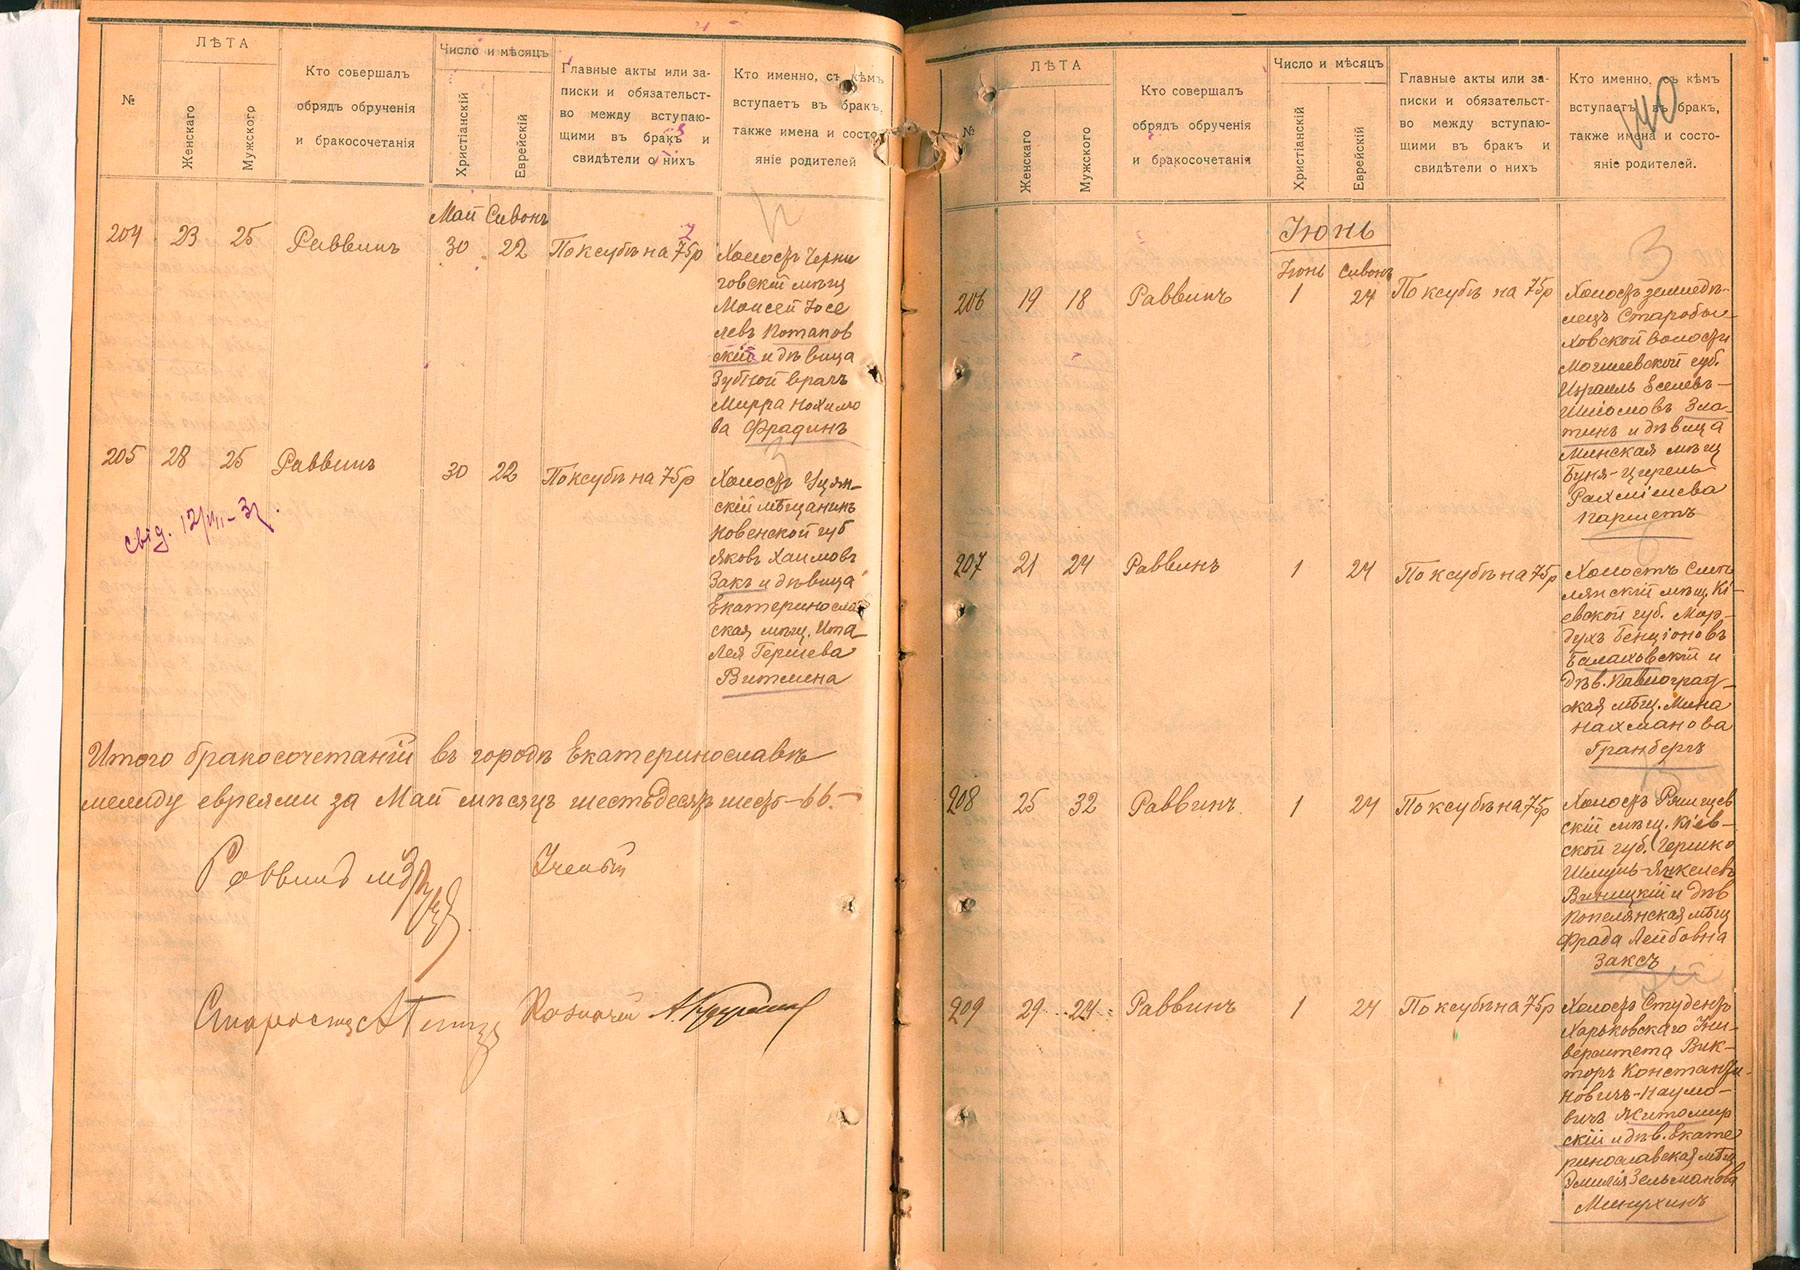 №
ЛѢТА
Женскаго
Мужского
Кто совершалъ
обрядъ обрученія
и бракосочетанія
Число и мѣсяцъ
Христіанскій
Еврейскій
Главные акты или за-
писки и обязательст-
во между вступаю-
щими въ бракъ и
свидѣтели о нихъ
Кто именно, съ кѣмъ
вступаетъ въ бракъ,
также имена и состо-
яніе родителей
Май Сивонъ
204 23 25 Раввинъ 30 22 По ксубѣ на 75р
Холостъ Черни
говскій мѣщ
Моисей Іосе
левъ Потапов
скій и дѣвица
Зубной врачъ
Мирра Нохимо
ва Фрадинъ
205 28 25 Раввинъ 30 22 По ксубѣ на 75р
Холостъ Уцян-
скій мѣщанинъ
Ковенской губ
Яковъ Хаимовъ
Закъ и дѣвица
Екатеринослав
ская мѣщ. Ита-
Лея Гершева
Витлина
свід. 12/VII-
Итого бракосочетаній въ городѣ Екатеринославѣ
между евреями за Май мѣсяцъ шестьдесятъ шесть-66.-
Раввинъ
Ученый
Староста
Казначей
№
ЛѢТА
Женскаго
Мужского
Кто совершалъ
обрядъ обрученія
и бракосочетанія
Число и мѣсяцъ
Христіанскій
Еврейскій
Главные акты или за-
писки и обязательст-
во между вступаю-
щими въ бракъ и
свидѣтели о нихъ
Кто именно, съ кѣмъ
вступаетъ въ бракъ,
также имена и состо-
яніе родителей.
140
Іюнь
Іюнь Сивонъ
206 19 18 Раввинъ 1 24 По ксубѣ на 75р
3
Холостъ земледѣ-
лецъ Старобы-
ховской волости
Могилевской губ.
Израиль Еселевъ-
Шліомовъ Зла-
тинъ и дѣвица
Минская мѣщ
Буня-Цирель
Рахмілева
Парметъ
207 21 24 Раввинъ 1 24 По ксубѣ на 75р
Холостъ Смѣ
лянскій мѣщ. Кі-
евской губ. Мор-
духъ Бенціоновъ
Балаховскій и
дѣв. Павлоград-
ская мѣщ. Мина
Нахманова
Гранбергъ
208 25 32 Раввинъ 1 24 По ксубѣ на 75р
Холостъ Ржищев
скій мѣщ. Кіев-
ской губ. Гершко
Шмуль-Янкелевъ
Виницкій и дѣв
Копелянская мѣщ
Фрада Лейбовна
Заксъ
209 29 24 Раввинъ 1 24 По ксубѣ на 75р
Холостъ Студентъ
Харьковскаго Уни-
верситета Вик-
торъ Константи-
новичъ-Наумо-
вичъ Житомир
скій и дѣв. Екате
ринославская мѣщ
Эмилія Зельманова
Минухинъ